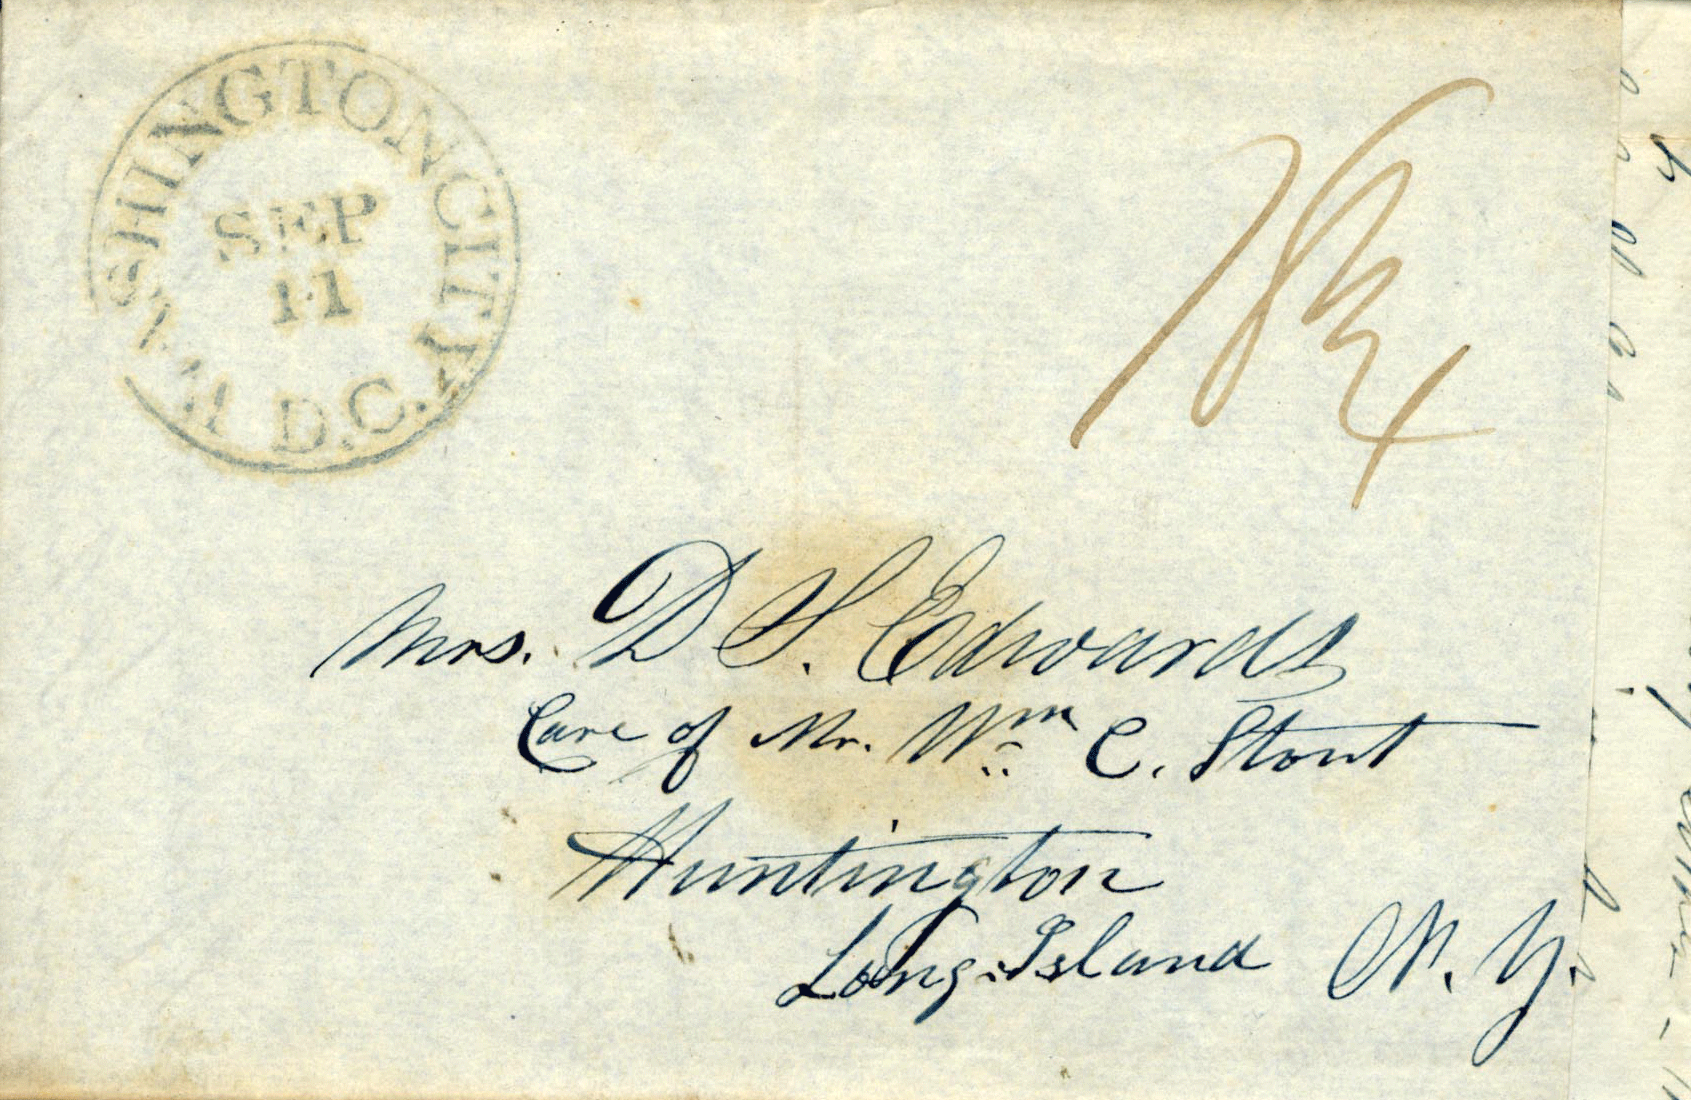 WASHINGTON CITY D.C.
SEP
11
18 3/4
Mrs. D S. Edwards
Care of Mr. Wm C. Stout
Huntington
Long-Island N. Y.